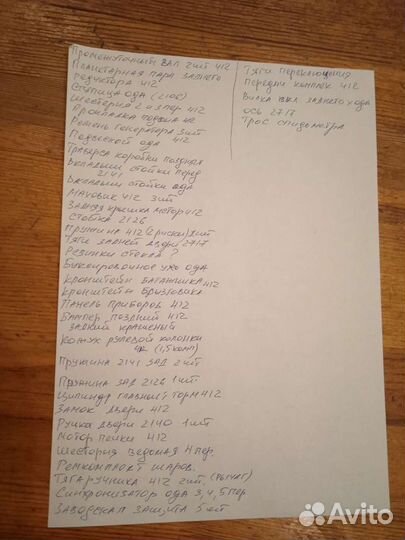 Промежуточный вал 2шт 412
Планетарная пара заднего
редуктора 412
Ступица ода (2106)
Шестерня 2 и 3 пер 412
Прокладка поддона 412
Ремень генератора 3шт
Подвесной ода 412
Траверса коробки поздняя
Вкладыш стойки перед
2141
Вкладыши стойки ода
Маховик 412 3шт
Задняя крышка мотор 412
Стойка 2126
Пружина 412 (2 риски) 2шт
Тяги задней двери 2717
Резинки стекла ?
Буксировочное ухо ода
Кронштейн багажника 412
Кронштейн брызговика
Панель приборов 412
Бампер поздний 412
задний крашеный
Кожух рулевой колонки
(1,5 комп)
Пружина 2141 зад 2шт
Пружина зад 2126 1шт
Цилиндр главный торм 412
Замок двери 412
Ручка двери 2140 1шт
Мотор печки 412
Шестория ведомая 4пер.
Ремкомплект шаров.
Тяга ручника 412 2шт. (рычаг)
Синхронизатор ода 3,4,5 пер
Заводская защита 5 шт
Тяги переключения
передач комплек 412
Вилка вкл заднего хода
ось 2717
Трос спидометра
Avito